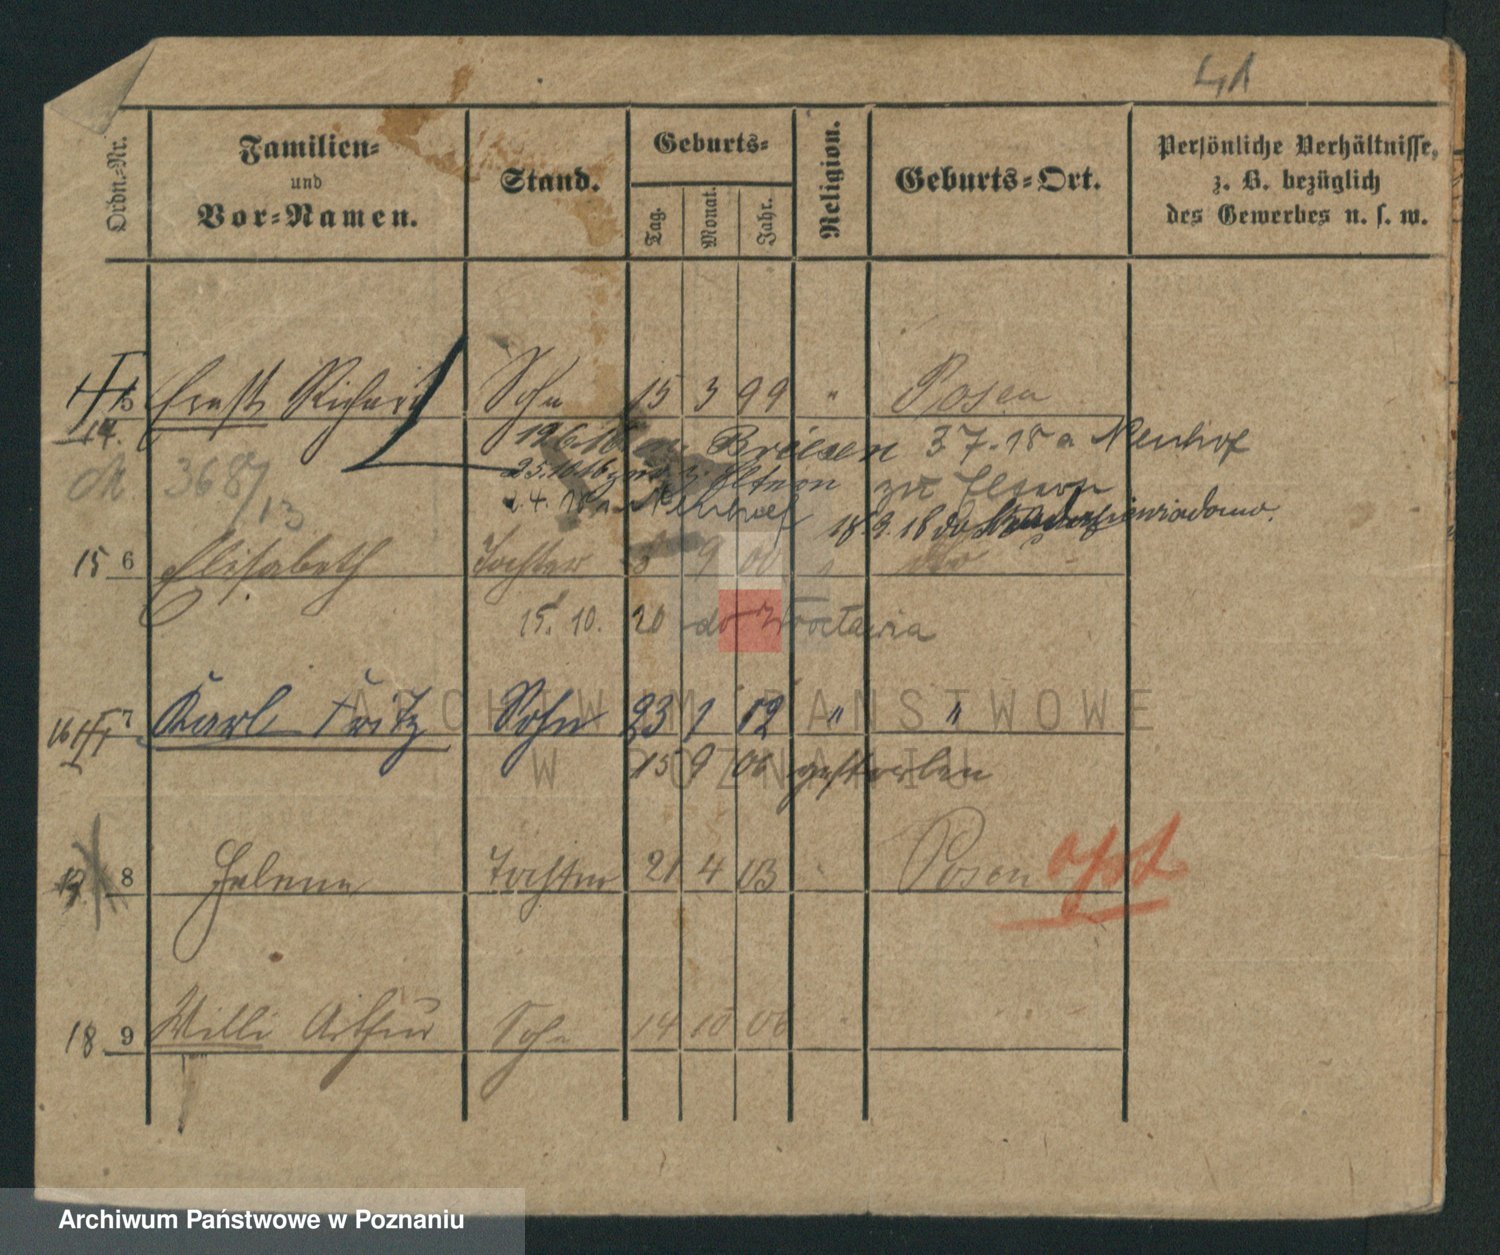 41
Ordn.-Nr.
Familien-
und
Vor-Namen.
Stand.
Geburts-
Tag.
Monat.
Jahr.
Religion.
Geburts-Ort.
Persönliche Verhältnisse,
z. B. bezüglich
des Gewerbes u. s. w.
5 Ernst Richard Sohn 15 3 99 " Posen
14. 19.6.16 Briesen 3 7.18 a Neuhof
M 368/13 25.10.16 Eltern zu Eltern
4. 18 Neuhof 18.9.18 do niewiadomo.
15 6 Elisabeth Tochter 3 9 00 do
15. 10. 20 do Wrocławia
16 7 Karl Fritz Sohn 23 1 02 " "
15 9 06 gestorben
17. 8 Helene Tochter 21 4 03 " Posen
18 9 Willi Arthur Sohn 14 10 06 "
ARCHIWUM PAŃSTWOWE
W POZNANIU
Archiwum Państwowe w Poznaniu